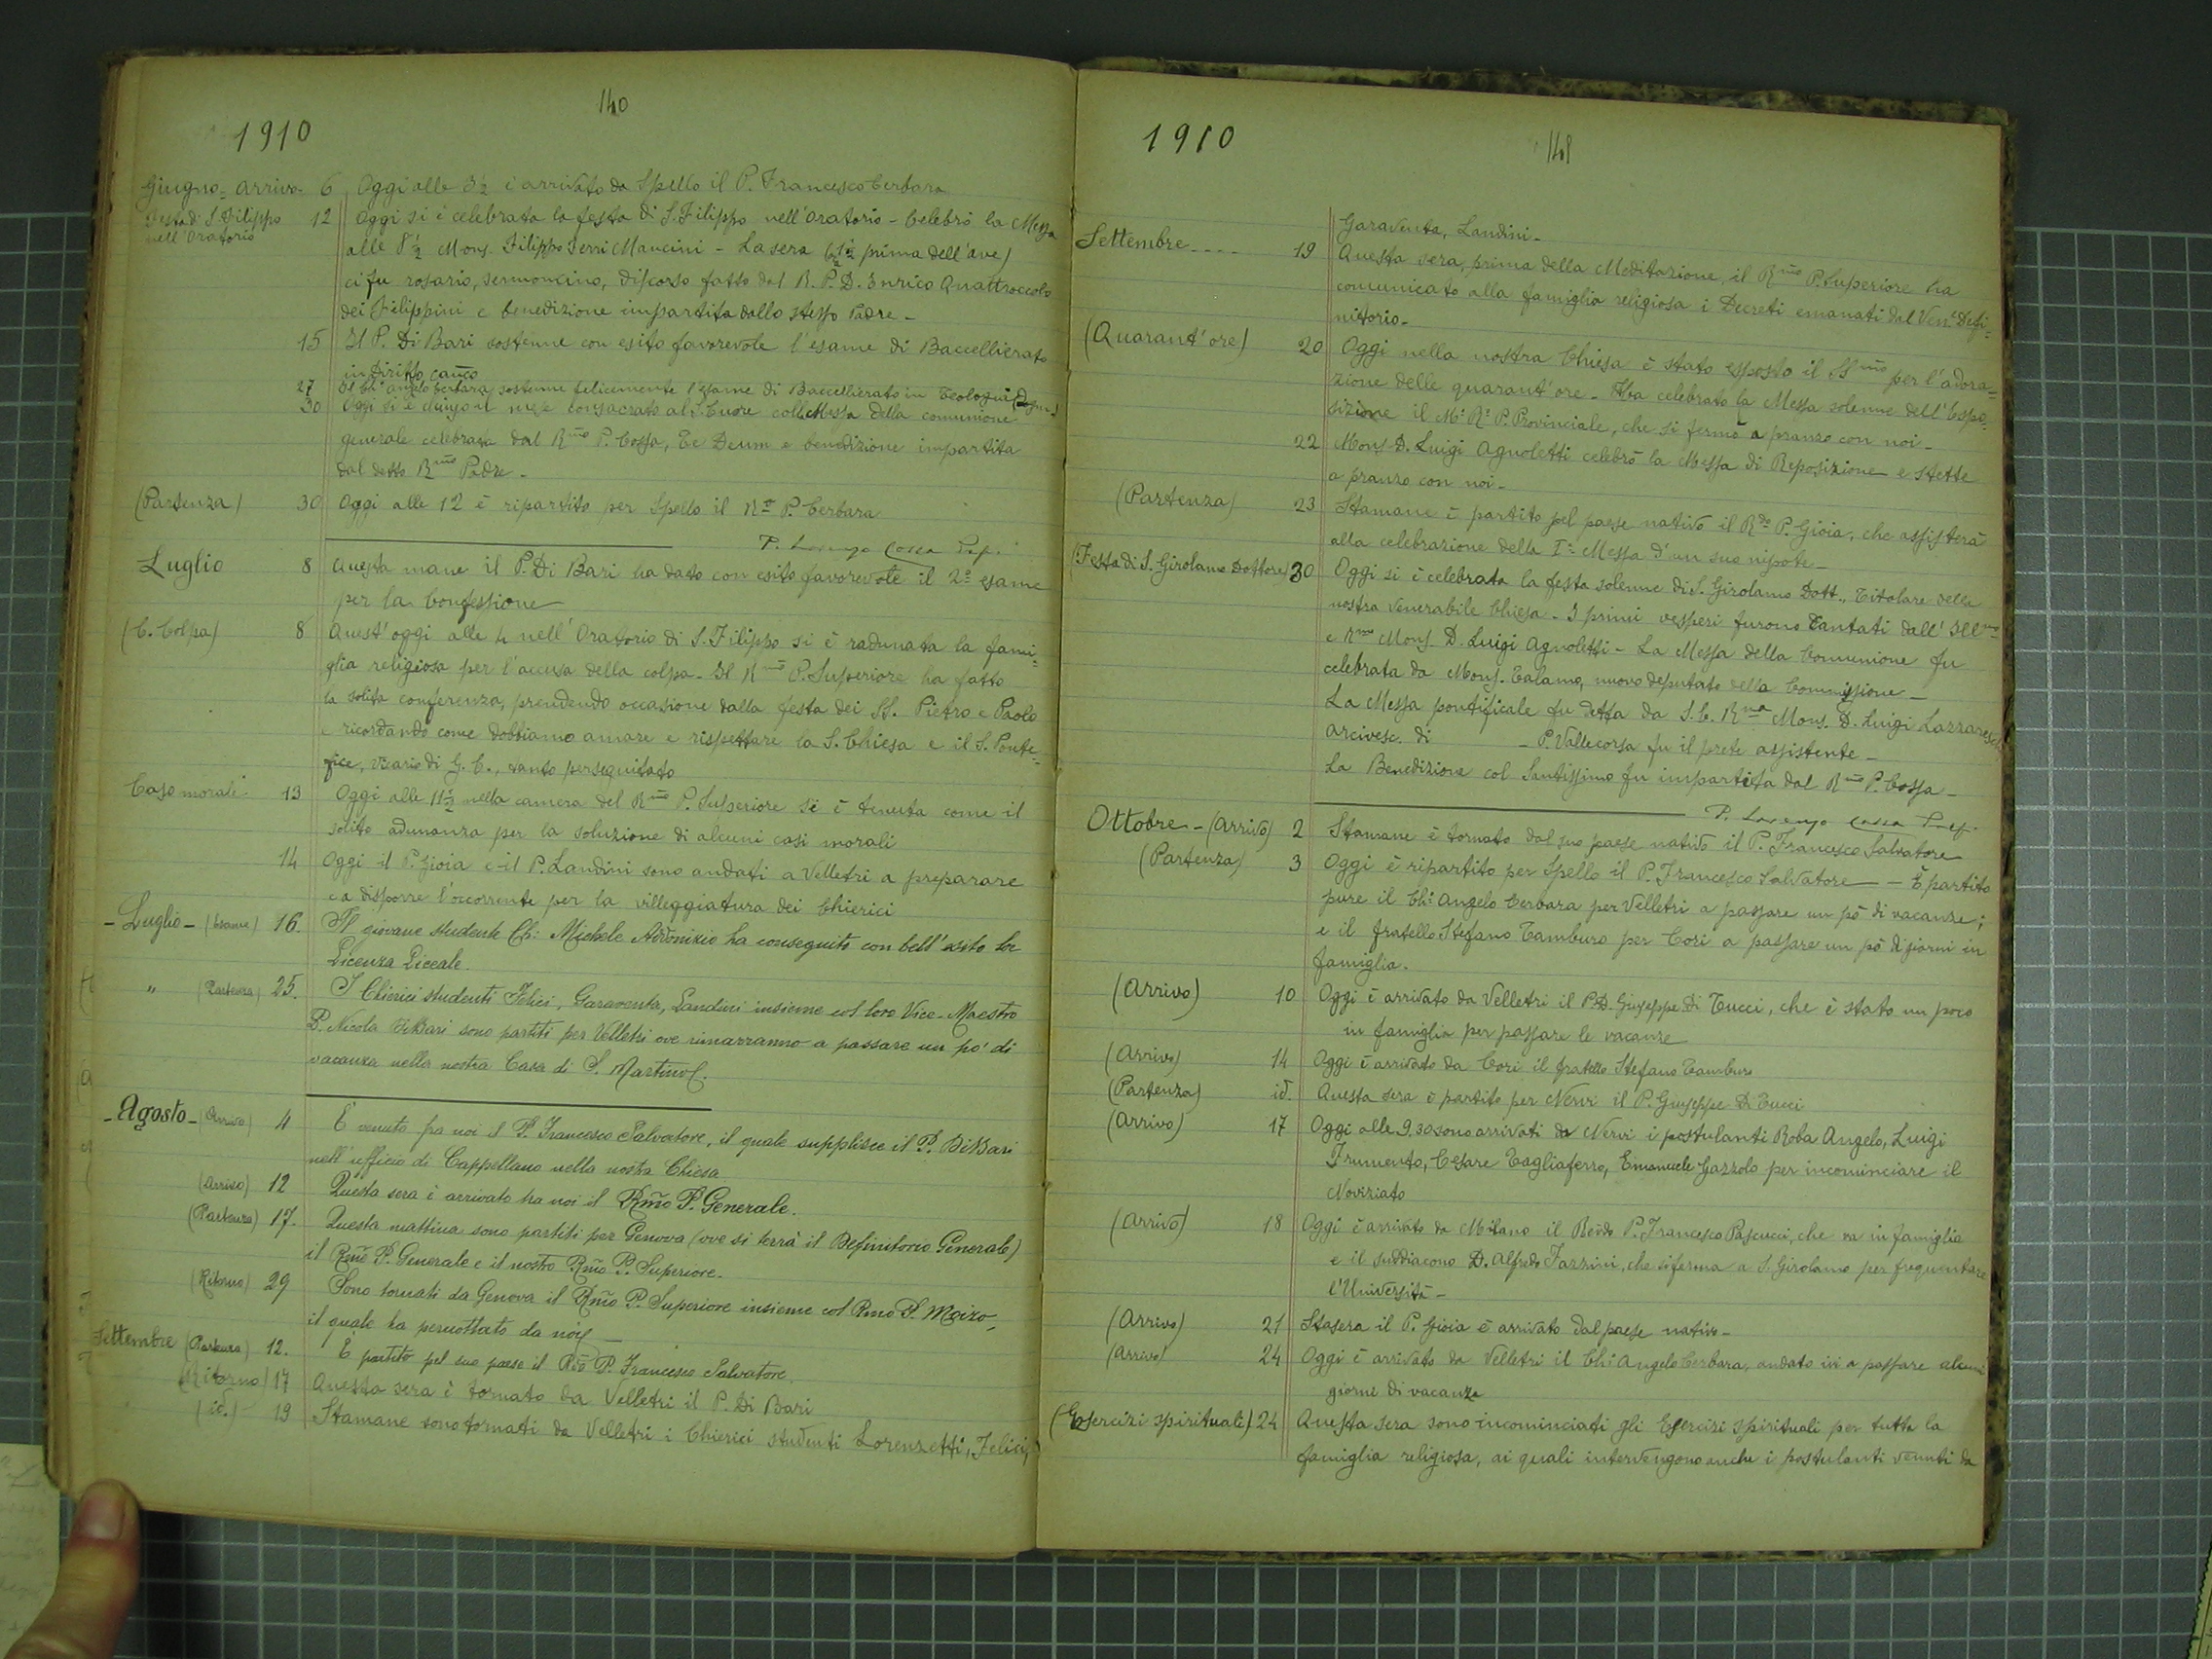 140
1910
Giugno - arrivo - 6 Oggi alle 3½ è arrivato da Spello il P. Francesco Cerbara
Festa di S. Filippo 12 Oggi si è celebrata la festa di S. Filippo nell'Oratorio - Celebrò la Messa
nell'Oratorio
alle 8½ Mons. Filippo Ferri Mancini - La sera (½ prima dell'ave)
ci fu rosario, sermoncino, discorso fatto dal R. P. D. Enrico Quattroccolo
dei Filippini e benedizione impartita dallo stesso Padre -
15 Il P. Di Bari sostenne con esito favorevole l'esame di Baccellierato
in diritto canco
27 Il Ch.º Angelo Cerbara sostenne felicemente l'esame di Baccellierato in Teologia
30 Oggi si è chiuso il mese consacrato al S. Cuore colla Messa della comunione
generale celebrata dal Rmo P. Cossa, Te Deum e benedizione impartita
dal detto Rmo Padre -
(Partenza) 30 Oggi alle 12 è ripartito per Spello il Rº P. Cerbara
P. Lorenzo Cossa Prep.
Luglio 8 Questa mane il P. Di Bari ha dato con esito favorevole il 2º esame
per la Confessione
(C. Colpa) 8 Quest'oggi alle 4 nell'Oratorio di S. Filippo si è radunata la fami=
glia religiosa per l'accusa della colpa - Il Rmo P. Superiore ha fatto
la solita conferenza, prendendo occasione dalla festa dei SS. Pietro e Paolo
e ricordando come dobbiamo amare e rispettare la S. Chiesa e il S. Ponte=
fice, vicario di G. C., tanto perseguitato
Caso morale 13 Oggi alle 11½ nella camera del Rmo P. Superiore si è tenuta come il
solito adunanza per la soluzione di alcuni casi morali
14 Oggi il P. Gioia e il P. Landini sono andati a Velletri a preparare
e a disporre l'occorrente per la villeggiatura dei Chierici
- Luglio - (Esame) 16. Il giovane studente Ch: Michele Addonizio ha conseguito con bell'esito la
Licenza Liceale.
" (Partenza) 25. I Chierici studenti Felici, Garaventa, Landini insieme col loro Vice-Maestro
P. Nicola DiBari sono partiti per Velletri ove rimarranno a passare un po' di
vacanza nella nostra Casa di S. Martino.
- Agosto - (Arrivo) 4 È venuto fra noi il P. Francesco Salvatore, il quale supplisce il P. DiBari
nell'ufficio di Cappellano nella nostra Chiesa
(Arrivo) 12 Questa sera è arrivato tra noi il Rmo P. Generale.
(Partenza) 17. Questa mattina sono partiti per Genova (ove si terrà il Definitorio Generale)
il Rmo P. Generale e il nostro Rmo P. Superiore.
(Ritorno) 29 Sono tornati da Genova il Rmo P. Superiore insieme col Rmo P. Moizo,
il quale ha pernottato da noi
Settembre (Partenza) 12. È partito pel suo paese il Rdo P. Francesco Salvatore.
(Ritorno) 17 Questa sera è tornato da Velletri il P. Di Bari
(id.) 19 Stamane sono tornati da Velletri i Chierici studenti Lorenzetti, Felici,
1910
141
Garaventa, Landini -
Settembre - - - - 19 Questa sera, prima della Meditazione, il Rmo P. Superiore ha
comunicato alla famiglia religiosa i Decreti emanati dal Ven. Defi=
nitorio -
(Quarant'ore) 20 Oggi nella nostra Chiesa è stato esposto il SSmo per l'adora=
zione delle quarant'ore - Ha celebrato la Messa solenne dell'Espo=
sizione il Mº Rº P. Provinciale, che si fermò a pranzo con noi -
22 Mons. D. Luigi Agnoletti celebrò la Messa di Reposizione e stette
a pranzo con noi -
(Partenza) 23 Stamane è partito pel paese nativo il Rdo P. Gioia, che assisterà
alla celebrazione della Iª Messa d'un suo nipote -
(Festa di S. Girolamo Dottore) 30 Oggi si è celebrata la festa solenne di S. Girolamo Dott., Titolare della
nostra Venerabile Chiesa - I primi vesperi furono cantati dall'Illmo
e Rmo Mons. D. Luigi Agnoletti - La Messa della Comunione fu
celebrata da Mons. Talamo, nuovo deputato della Commissione -
La Messa pontificale fu detta da S. E. Rma Mons. D. Luigi Lazzareschi
Arcivesc. di - P. Vallecorsa fu il prete assistente -
La Benedizione col Santissimo fu impartita dal Rmo P. Cossa -
P. Lorenzo Cossa Prep.
Ottobre - (Arrivo) 2 Stamane è tornato dal suo paese nativo il P. Francesco Salvatore
(Partenza) 3 Oggi è ripartito per Spello il P. Francesco Salvatore - È partito
pure il Ch: Angelo Cerbara per Velletri a passare un pò di vacanze;
e il fratello Stefano Tamburo per Cori a passare un pò di giorni in
famiglia.
(Arrivo) 10 Oggi è arrivato da Velletri il P. D. Giuseppe Di Tucci, che è stato un poco
in famiglia per passare le vacanze
(Arrivo) 14 Oggi è arrivato da Cori il fratello Stefano Tamburo
(Partenza) id. Questa sera è partito per Nervi il P. Giuseppe Di Tucci
(Arrivo) 17 Oggi alle 9.30 sono arrivati da Nervi i postulanti Roba Angelo, Luigi
Frumento, Cesare Tagliaferro, Emanuele Gazzolo per incominciare il
Noviziato
(Arrivo) 18 Oggi è arrivato da Milano il Revdo P. Francesco Pascucci, che va in famiglia
e il suddiacono D. Alfredo Fazzini, che si ferma a S. Girolamo per frequentare
l'Università -
(Arrivo) 21 Stasera il P. Gioia è arrivato dal paese nativo -
(Arrivo) 24 Oggi è arrivato da Velletri il Ch: Angelo Cerbara, andato ivi a passare alcuni
giorni di vacanze
(Esercizi spirituali) 24 Questa sera sono incominciati gli Esercizi spirituali per tutta la
famiglia religiosa, ai quali intervengono anche i postulanti venuti da